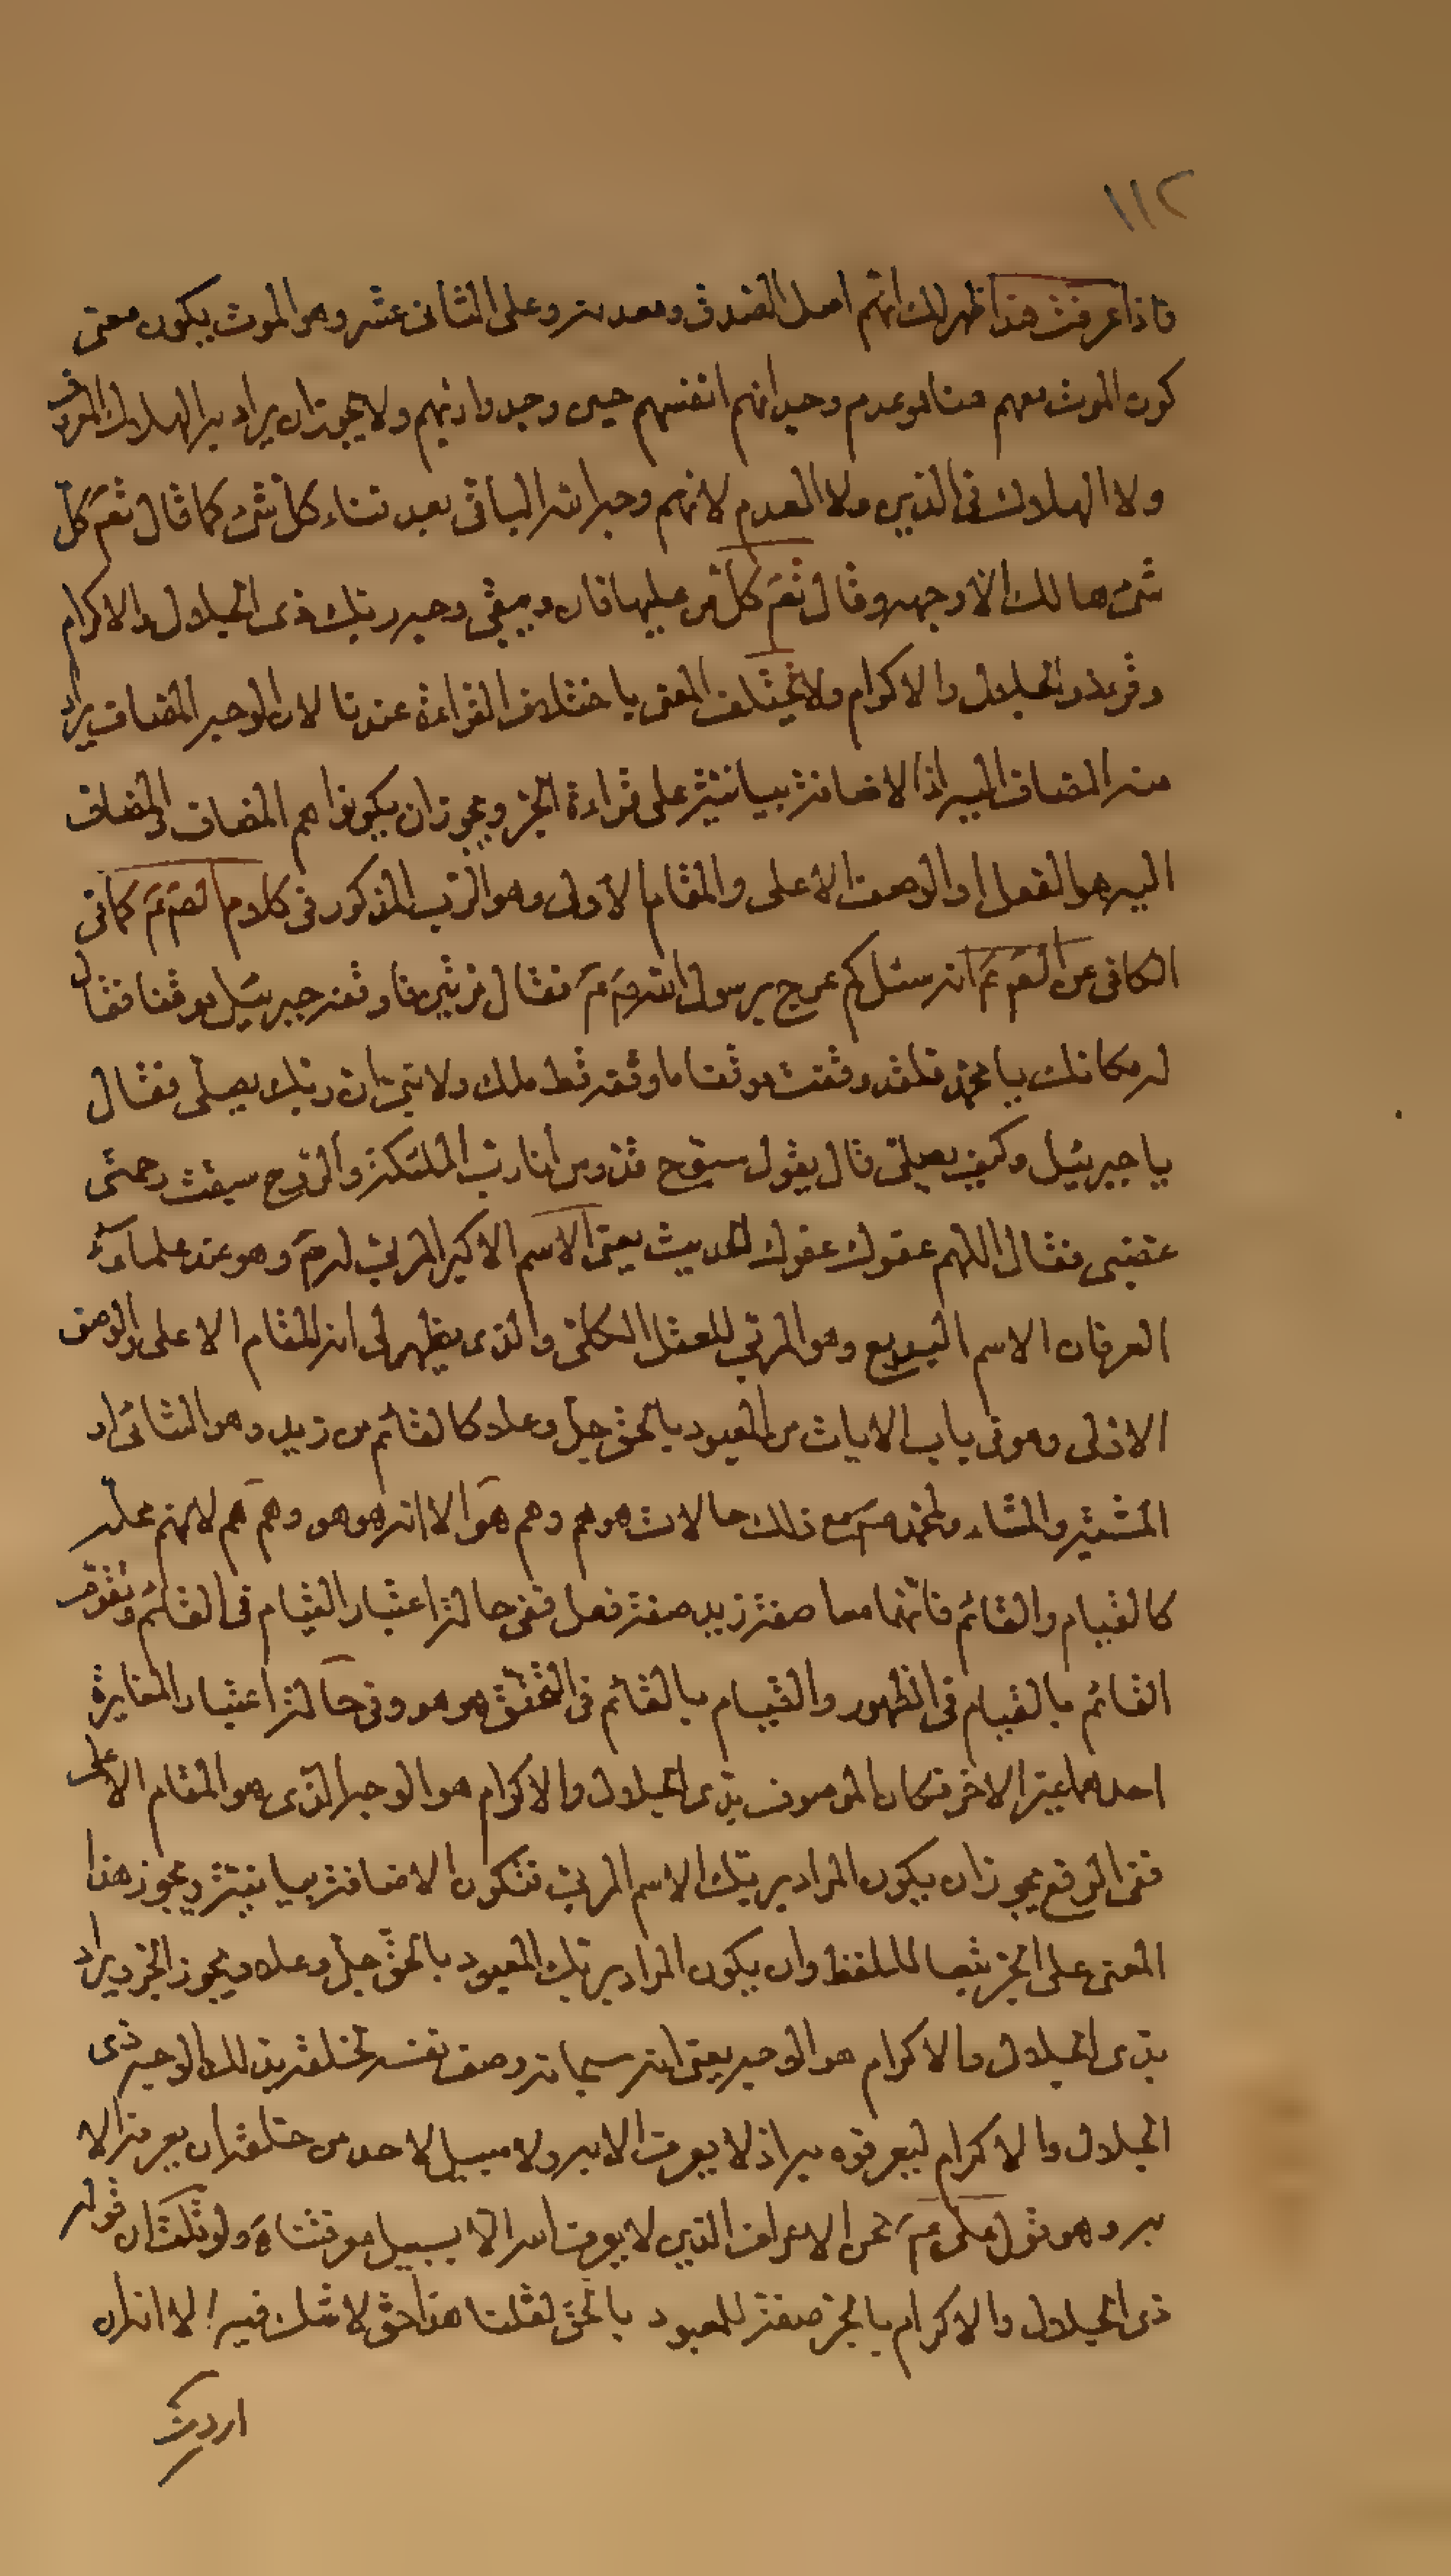 ١١٢
فاذا عرفت هذا ظهر لك انهم اصل الصدق ومعدنه وعلى الثانى عشر وهو الموت يكون معنى
كون الموت معهم هو عدم وجدانهم انفسهم حين وجدوا ربهم ولا يجوز ان يراد به الهلاك المعروف
ولا الهلاك فى الدين ولا العدم لانهم وجه الله الباقى بعد فناء كل شىء كما قال تعم كل
شىء هالك الا وجهه وقال تعم كل من عليها فان ويبقى وجه ربك ذى الجلال والاكرام
وقرء ذو الجلال والاكرام ولا يختلف المعنى باختلاف القراءة عندنا لان الوجه المضاف يراد
منه المضاف اليه اذ الاضافة بيانية على قراءة الجر ويجوز ان يكونوا هم المضاف والمضاف
اليه هو الفعل او الوصف الاعلى والمقام الاول وهو الرب المذكور فى كلام الصم عم كما فى
الكافى عن الصم عم انه سئل كم عرج برسول الله صم فقال مرتين فاوقفه جبرئيل موقفا فقال
له مكانك يا محمد فلقد وقفت موقفا ما وقفه قط ملك ولا نبى ان ربك يصلى فقال
يا جبرئيل وكيف يصلى قال يقول سبوح قدوس انا رب الملئكة والروح سبقت رحمتى
غضبى فقال اللهم عفوك عفوك الحديث يعنى الاسم الاكبر المربى له صم وهو عند علماء
العرفان الاسم البديع وهو المربى للعقل الكلى والذى يظهر لى انه المقام الاعلى والوصف
الاول وهو فى باب الايات من المعبود بالحق جل وعلا كالقائم من زيد وهو المشائى او
المشية والمشاء ولمحمد صم مع ذلك حالات هو هم وهم هو الا انه هو هو وهم هم لانهم محله
كالقيام والقائم فانهما معا صفة زيد صفة فعل ففى حالة اعتبار القيام فى القائم وتقوم
القائم بالقيام فى الظهور والقيام بالقائم فى التحقق هو هو وفى حالة اعتبار المغايرة
احدهما غير الاخر فكان الموصوف بذى الجلال والاكرام هو الوجه الذى هو المقام الاعلى
ففى الرفع يجوز ان يكون المراد بربك الاسم المربى فتكون الاضافة بيانية ويجوز هذا
المعنى على الجر تبعا للفظ وان يكون المراد بربك المعبود بالحق جل وعلا ويجوز الجر ويراد
بذى الجلال والاكرام هو الوجه يعنى انه سبحانه وصف نفسه لخلقه بذلك الوجه ذى
الجلال والاكرام ليعرفوه به اذ لا يعرف الا به ولا سبيل لاحد من خلقه ان يعرفه الا
به وهو قول على عم نحن الاعراف الذين لا يعرف الله الا بسبيل معرفتنا ولو قلت ان قوله
ذى الجلال والاكرام بالجر صفة للمعبود بالحق لقلنا هذا حق لا شك فيه الا انك ان
اردت